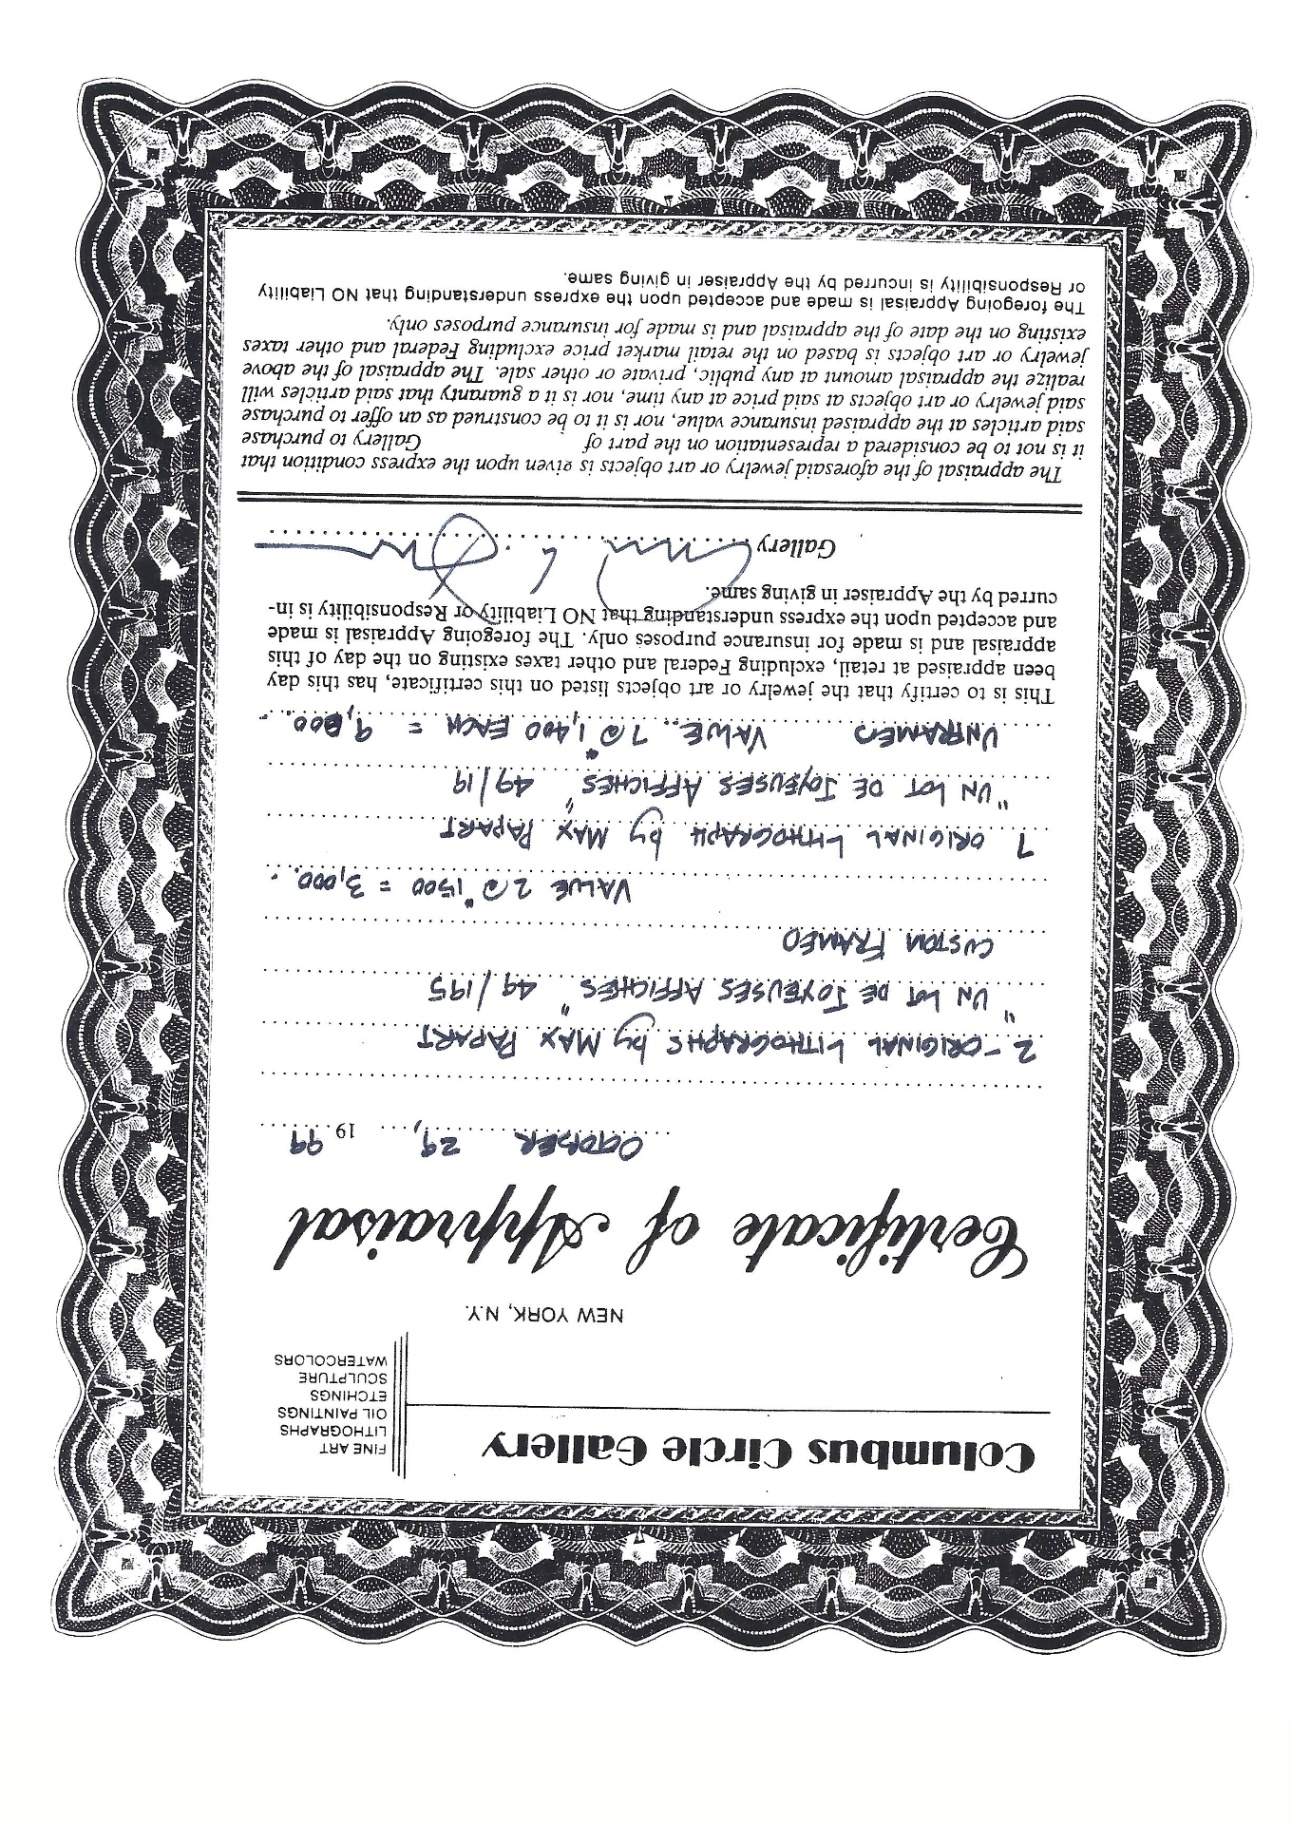 Columbus Circle Gallery
FINE ART
LITHOGRAPHS
OIL PAINTINGS
ETCHINGS
SCULPTURE
WATERCOLORS
NEW YORK, N.Y.
Certificate of Appraisal
OCTOBER 29, 19 99
2 - ORIGINAL LITHOGRAPHS by MAX PAPART
"UN LOT DE JOYEUSES AFFICHES" 49/195
CUSTOM FRAMED
VALUE 2 @ 1500 = 3,000.
7 ORIGINAL LITHOGRAPH by MAX PAPART
"UN LOT DE JOYEUSES AFFICHES" 49/19
UNFRAMED VALUE.. 7 @ 1,400 EACH = 9,800.
This is to certify that the jewelry or art objects listed on this certificate, has this day
been appraised at retail, excluding Federal and other taxes existing on the day of this
appraisal and is made for insurance purposes only. The foregoing Appraisal is made
and accepted upon the express understanding that NO Liability or Responsibility is in-
curred by the Appraiser in giving same.
Gallery
The appraisal of the aforesaid jewelry or art objects is given upon the express condition that
it is not to be considered a representation on the part of Gallery to purchase
said articles at the appraised insurance value, nor is it to be construed as an offer to purchase
said jewelry or art objects at said price at any time, nor is it a guaranty that said articles will
realize the appraisal amount at any public, private or other sale. The appraisal of the above
jewelry or art objects is based on the retail market price excluding Federal and other taxes
existing on the date of the appraisal and is made for insurance purposes only.
The foregoing Appraisal is made and accepted upon the express understanding that NO Liability
or Responsibility is incurred by the Appraiser in giving same.